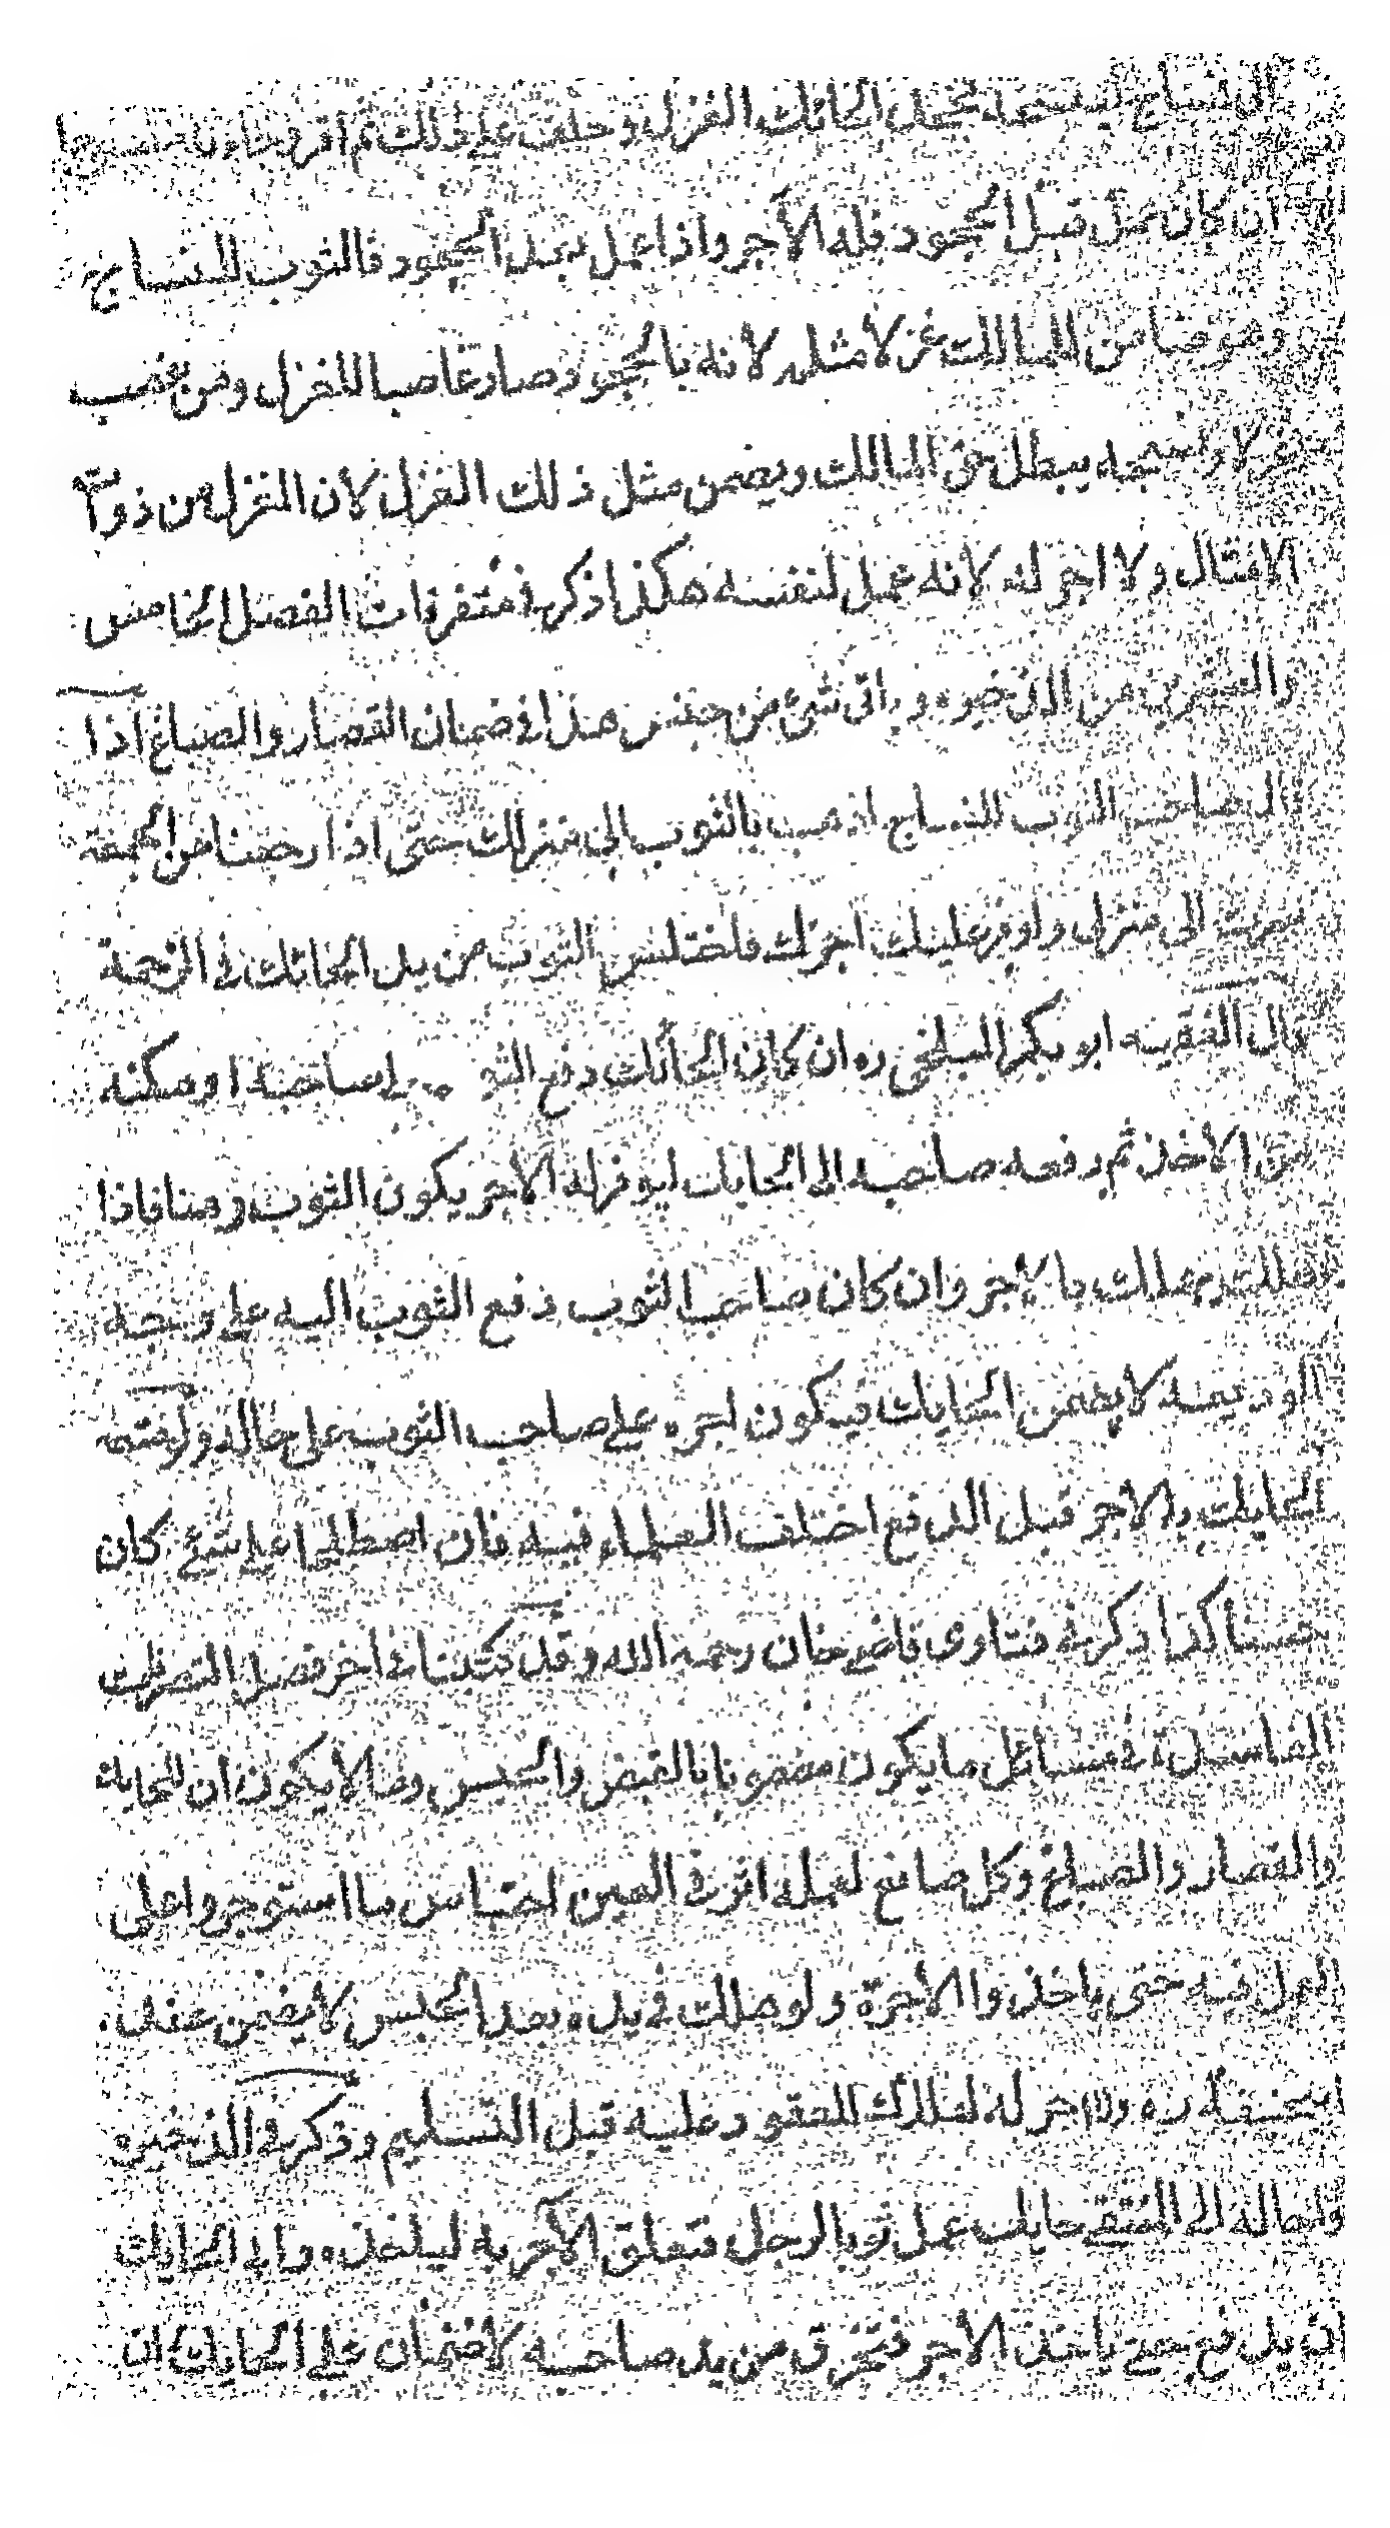 الى نساج لينسجه فجحد الحائك الغزل وحلف على ذلك ثم اقر وجاء به منسوجا
ان كان عمل قبل الجحود فله الاجر واذا عمل بعد الجحود فالثوب للنساج
وهو ضامن للمالك غزلا مثله لانه بالجحود صار غاصبا للغزل ومن غصب
غزلا ونسجه يبطل حق المالك ويضمن مثل ذلك الغزل لان الغزل من ذوات
الامثال ولا اجر له لانه عمل لنفسه هكذا ذكر في متفرقات الفصل الخامس
والعشرين من الذخيره وياتى شئ من جنس هذا في ضمان القصار والصباغ اذا
قال صاحب الثوب للنساج اذهب بالثوب الى منزلك حتى اذا رجعنا من الجمعة
سرت الى منزلى واوفر عليك اجرك فاختلس الثوب من يد الحائك في الزحمة
قال الفقيه ابو بكر البلخي ره ان كان الحائك دفع الثو الى صاحبه او مكنه
من الاخذ ثم دفعه صاحبه الى الحايك ليوفر له الاجر يكون الثوب رهنا فاذا
هلك هلك بالاجر وان كان صاحب الثوب دفع الثوب اليه على وجه
الوديعة لا يضمن الحايك فيكون اجره على صاحب الثوب على حاله ولو منعه
الحايك بالاجر قبل الدفع اختلف العلماء فيه فان اصطلحا على شئ كان
حسنا كذا ذكر في فتاوى قاضي خان رحمه الله وقد كتبنا في اخر فصل التصرفات
الفاسدة في مسائل ما يكون مضمونا بالقبض والحبس وما لا يكون ان للحايك
والقصار والصباغ وكل صانع لعمله اثر في العين احتباس ما استوجروا على
العمل فيه حتى ياخذوا الاجرة ولو هلك في يده بعد الحبس لا يضمن عند
ابيحنيفه ره ولا اجر له لهلاك المعقود عليه قبل التسليم وذكر في الذخيره
واحاله الى المنتقى حايك عمل ثوبا لرجل فتعلق الآجر به لياخذه وابى الحايك
ان يدفع حتى ياخذ الاجر فتخرق من يد صاحبه لا ضمان على الحايك ان